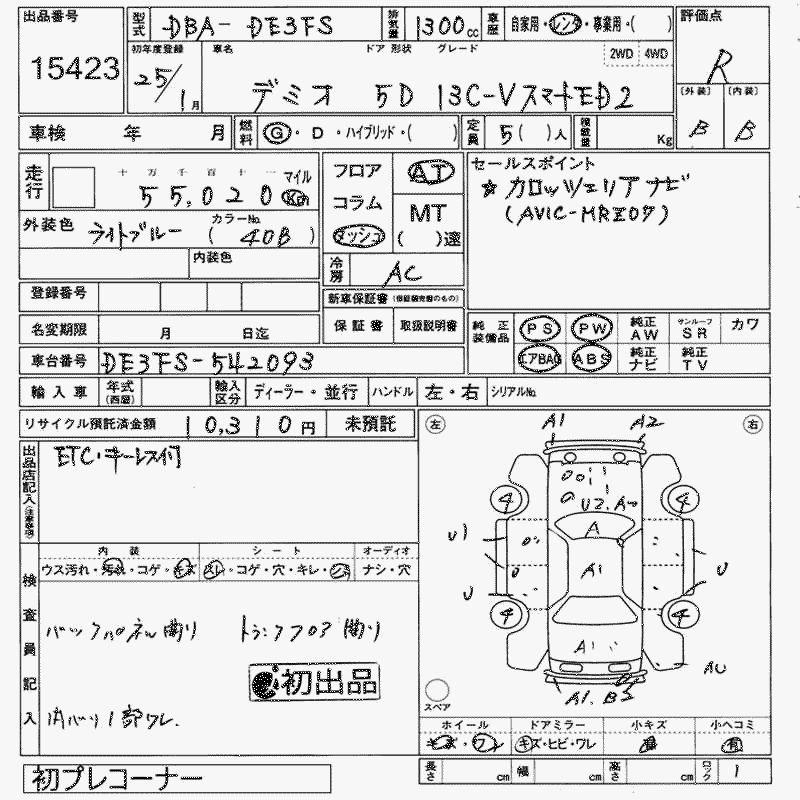 出品番号 15423
型式 DBA- DE3FS 排気量 1300cc 車歴 自家用・レンタ・事業用・( )
評価点 R
初年度登録 25/1月
車名 ドア 形状 グレード 2WD 4WD
デミオ 5D 13C-Vスマートエディ2
(外装) B (内装) B
車検 年 月 燃料 G・D・ハイブリッド・( ) 定員 5( )人 積載量 Kg
走行 十 万 千 百 十 一 マイル
55,020 Km
外装色 ライトブルー カラーNo. ( 40B )
内装色
登録番号
名変期限 月 日迄
フロア AT
コラム MT
ダッシュ ( )速
冷房 AC
新車保証書
保証書 取扱説明書
セールスポイント
☆カロッツェリアナビ
(AVIC-MRZ07)
純正装備品 PS PW 純正AW サンルーフSR カワ
エアBAG ABS 純正ナビ 純正TV
車台番号 DE3FS-542093
輸入車 年式(西暦) 輸入区分 ディーラー・並行 ハンドル 左・右 シリアルNo.
リサイクル預託済金額 10,310円 未預託
出品店記入(注意事項)
ETC・キーレス付
検査員記入
内装 シート オーディオ
ウス汚れ・汚れ・コゲ・キズ スレ・コゲ・穴・キレ・シミ ナシ・穴
バックパネル曲り トランクフロア曲り
初出品
内バリ1部ワレ.
左 A1 A2 右
4 U2. A 4
A
U1 A1 U
U
4 4
A1
AU
A1. B3
スペア
ホイール ドアミラー 小キズ 小ヘコミ
キズ・ワレ キズ・ヒビ・ワレ 有 有
長さ cm 幅 cm 高さ cm ロック 1
初プレコーナー